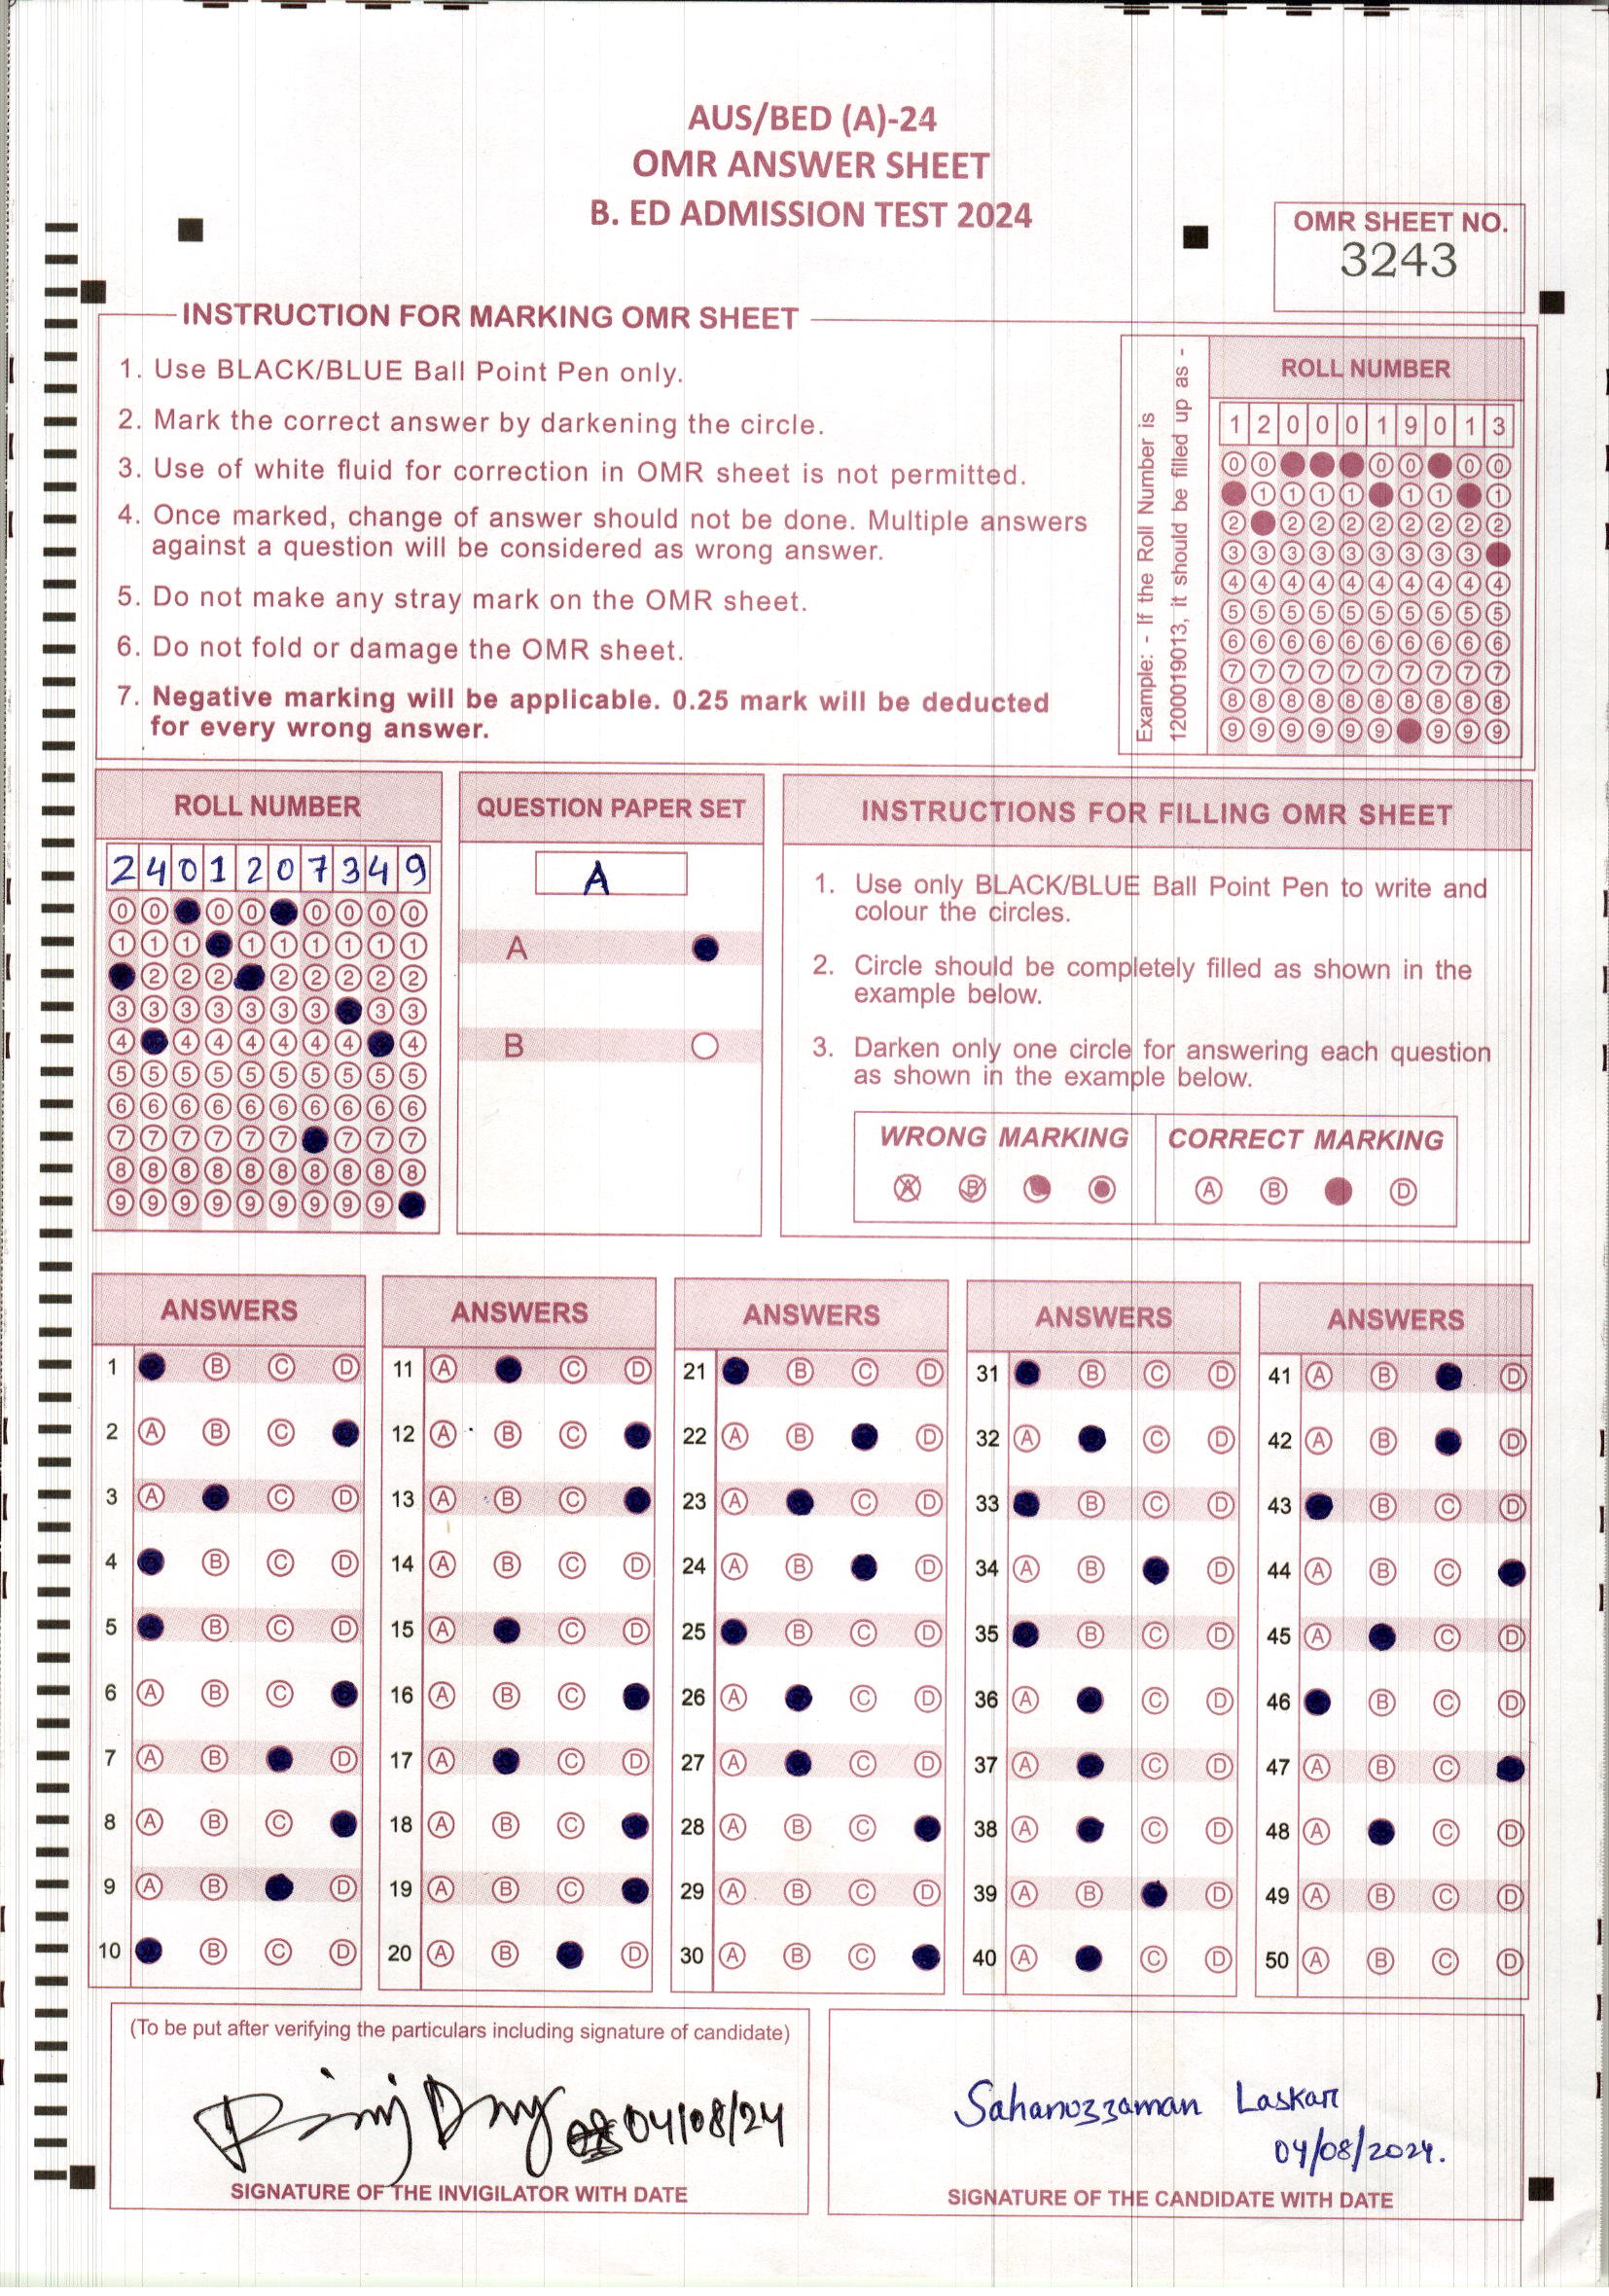 AUS/BED (A)-24
OMR ANSWER SHEET
B. ED ADMISSION TEST 2024
OMR SHEET NO.
3243
INSTRUCTION FOR MARKING OMR SHEET
1. Use BLACK/BLUE Ball Point Pen only.
2. Mark the correct answer by darkening the circle.
3. Use of white fluid for correction in OMR sheet is not permitted.
4. Once marked, change of answer should not be done. Multiple answers
against a question will be considered as wrong answer.
5. Do not make any stray mark on the OMR sheet.
6. Do not fold or damage the OMR sheet.
7. Negative marking will be applicable. 0.25 mark will be deducted
for every wrong answer.
Example: - If the Roll Number is
1200019013, it should be filled up as -
ROLL NUMBER
1 2 0 0 0 1 9 0 1 3
0 0 0 0 0 0
1 1 1 1 1 1 1
2 2 2 2 2 2 2 2 2
3 3 3 3 3 3 3 3 3
4 4 4 4 4 4 4 4 4 4
5 5 5 5 5 5 5 5 5 5
6 6 6 6 6 6 6 6 6 6
7 7 7 7 7 7 7 7 7 7
8 8 8 8 8 8 8 8 8 8
9 9 9 9 9 9 9 9 9
ROLL NUMBER
2 4 0 1 2 0 7 3 4 9
0 0 0 0 0 0 0 0
1 1 1 1 1 1 1 1 1
2 2 2 2 2 2 2 2
3 3 3 3 3 3 3 3 3
4 4 4 4 4 4 4 4
5 5 5 5 5 5 5 5 5 5
6 6 6 6 6 6 6 6 6 6
7 7 7 7 7 7 7 7 7
8 8 8 8 8 8 8 8 8 8
9 9 9 9 9 9 9 9 9
QUESTION PAPER SET
A
A
B
INSTRUCTIONS FOR FILLING OMR SHEET
1. Use only BLACK/BLUE Ball Point Pen to write and
colour the circles.
2. Circle should be completely filled as shown in the
example below.
3. Darken only one circle for answering each question
as shown in the example below.
WRONG MARKING
A B
CORRECT MARKING
A B D
ANSWERS
1 B C D
2 A B C
3 A C D
4 B C D
5 B C D
6 A B C
7 A B D
8 A B C
9 A B D
10 B C D
ANSWERS
11 A C D
12 A B C
13 A B C
14 A B C D
15 A C D
16 A B C
17 A C D
18 A B C
19 A B C
20 A B D
ANSWERS
21 B C D
22 A B D
23 A C D
24 A B D
25 B C D
26 A C D
27 A C D
28 A B C
29 A B C D
30 A B C
ANSWERS
31 B C D
32 A C D
33 B C D
34 A B D
35 B C D
36 A C D
37 A C D
38 A C D
39 A B D
40 A C D
ANSWERS
41 A B D
42 A B D
43 B C D
44 A B C
45 A C D
46 B C D
47 A B C
48 A C D
49 A B C D
50 A B C D
(To be put after verifying the particulars including signature of candidate)
04/08/24
SIGNATURE OF THE INVIGILATOR WITH DATE
Sahanozzaman Laskar
04/08/2024.
SIGNATURE OF THE CANDIDATE WITH DATE